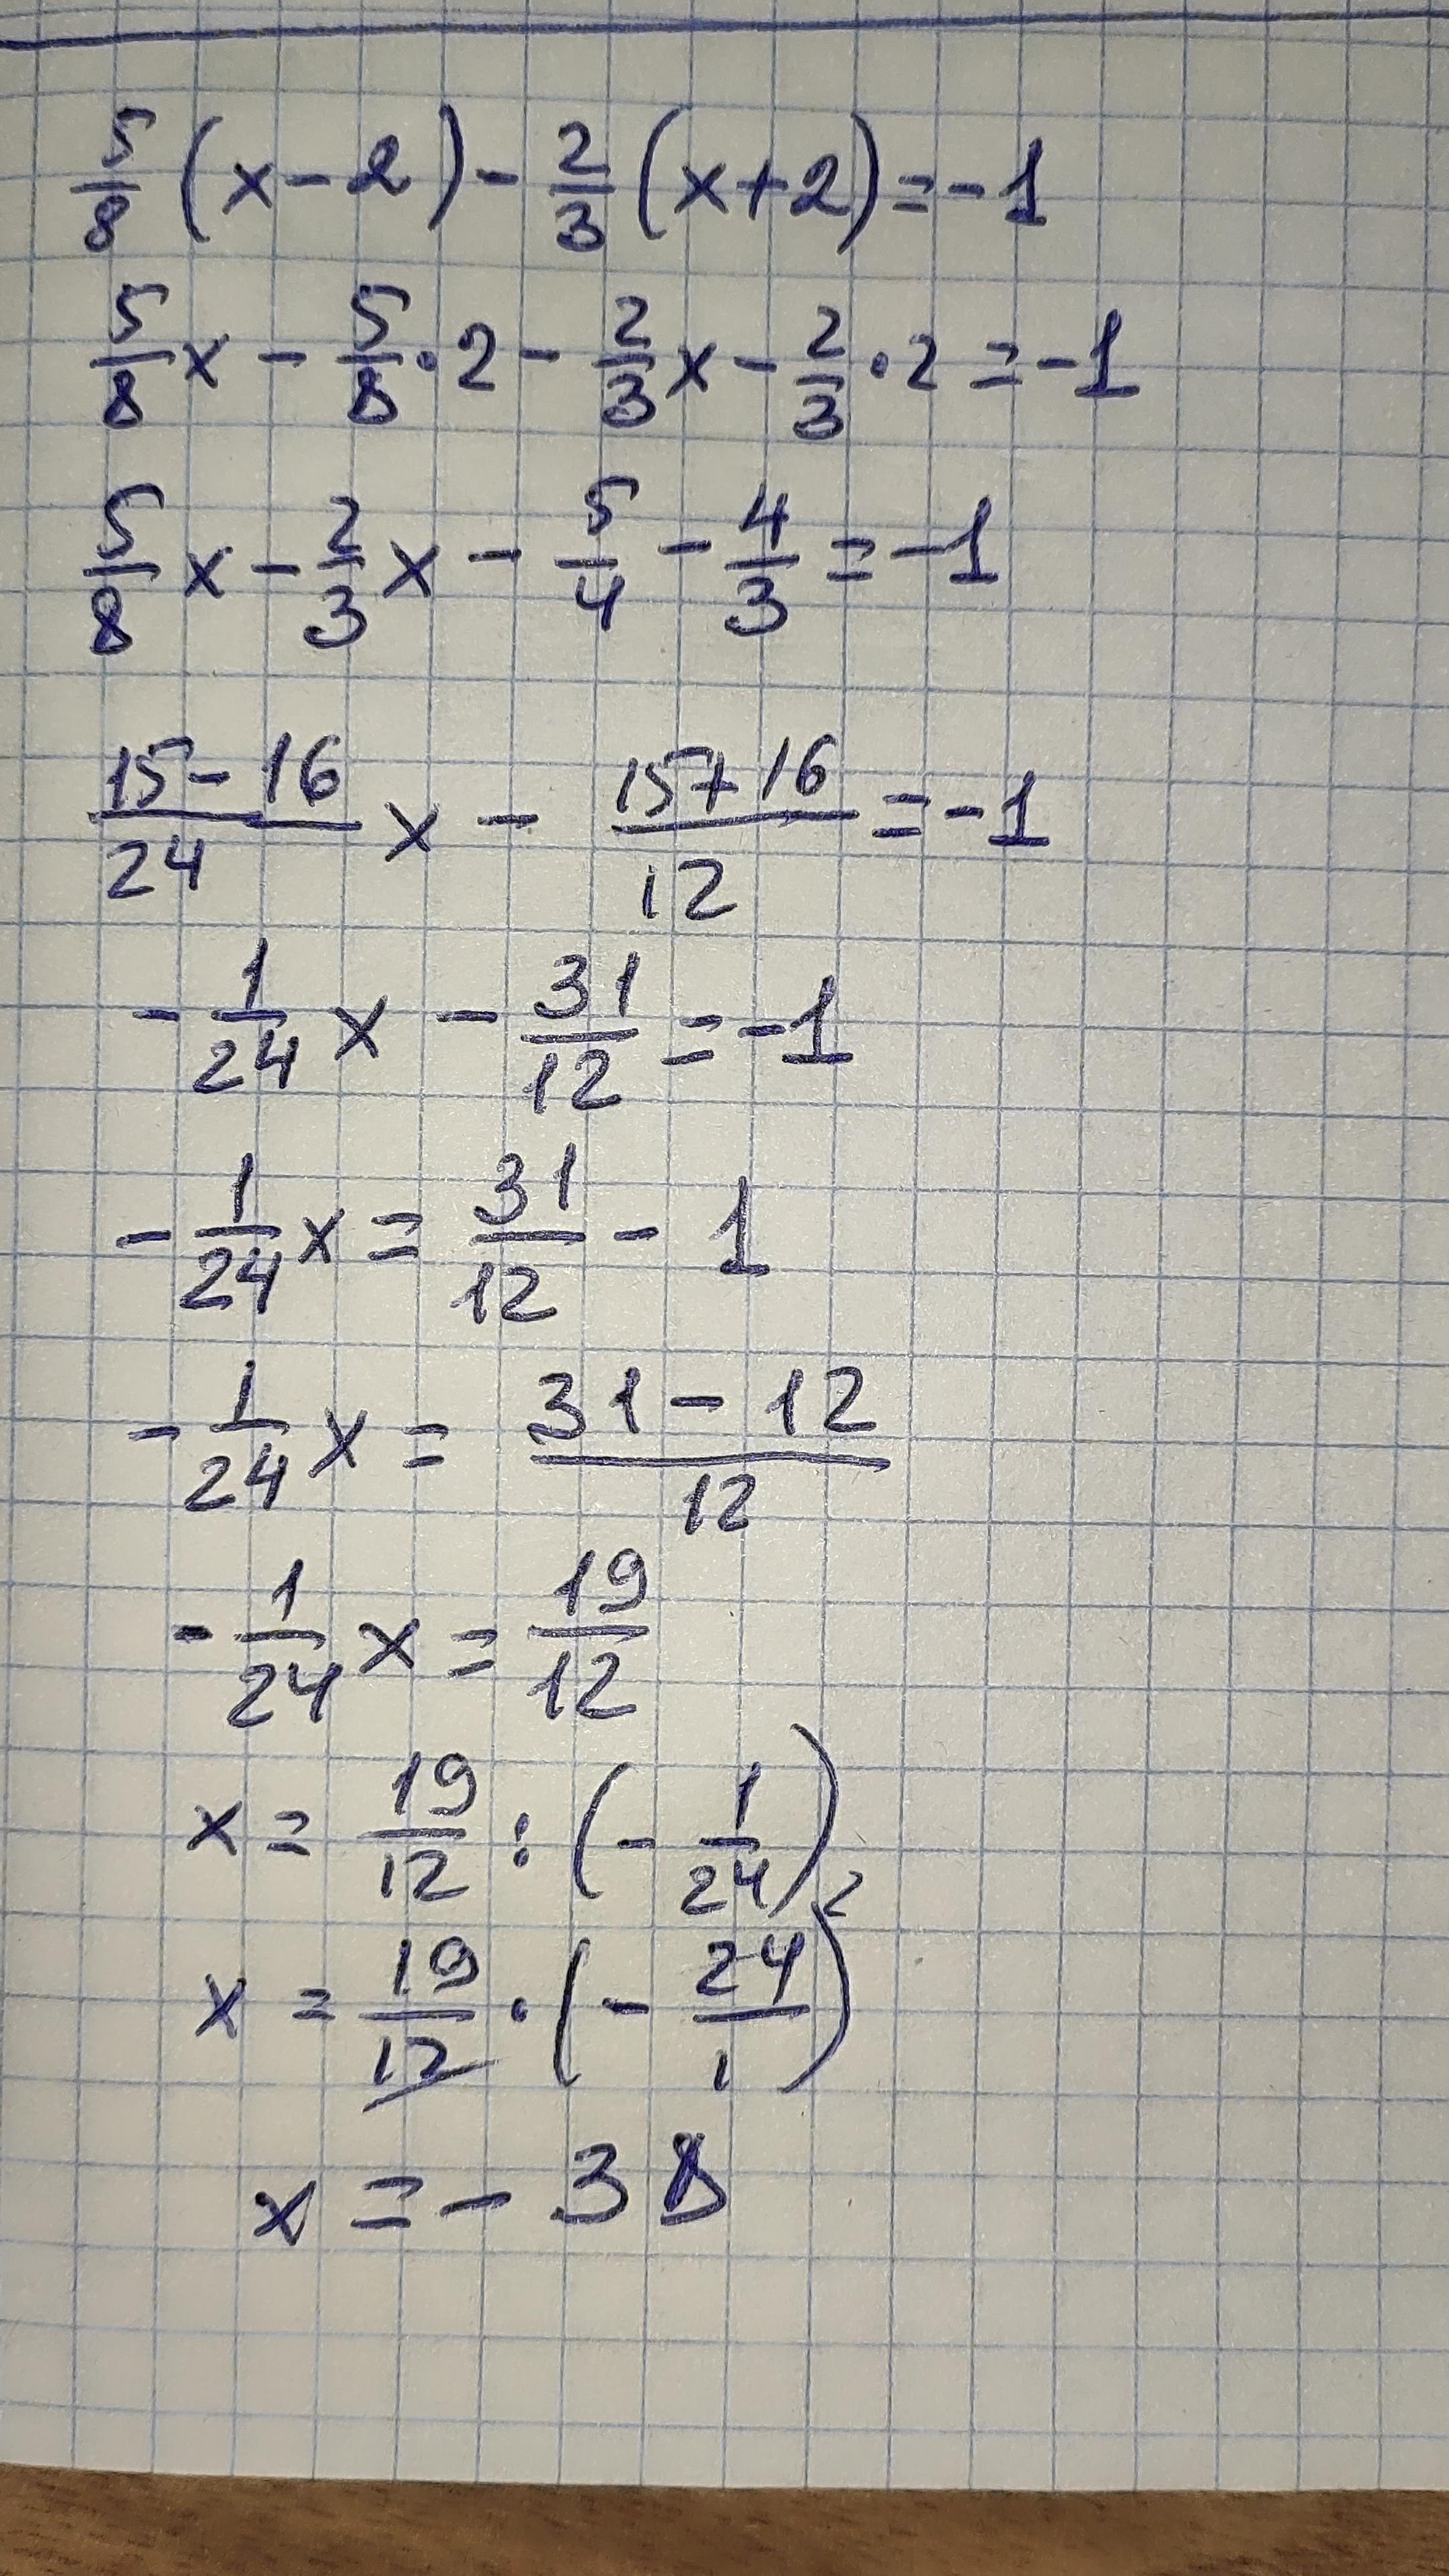 5/8 (x - 2) - 2/3 (x + 2) = -1
5/8 x - 5/8 · 2 - 2/3 x - 2/3 · 2 = -1
5/8 x - 2/3 x - 5/4 - 4/3 = -1
15 - 16/24 x - 15 + 16/12 = -1
- 1/24 x - 31/12 = -1
- 1/24 x = 31/12 - 1
- 1/24 x = 31 - 12/12
- 1/24 x = 19/12
x = 19/12 : (- 1/24)
x = 19/12 · (- 24/1) 2
x = - 38